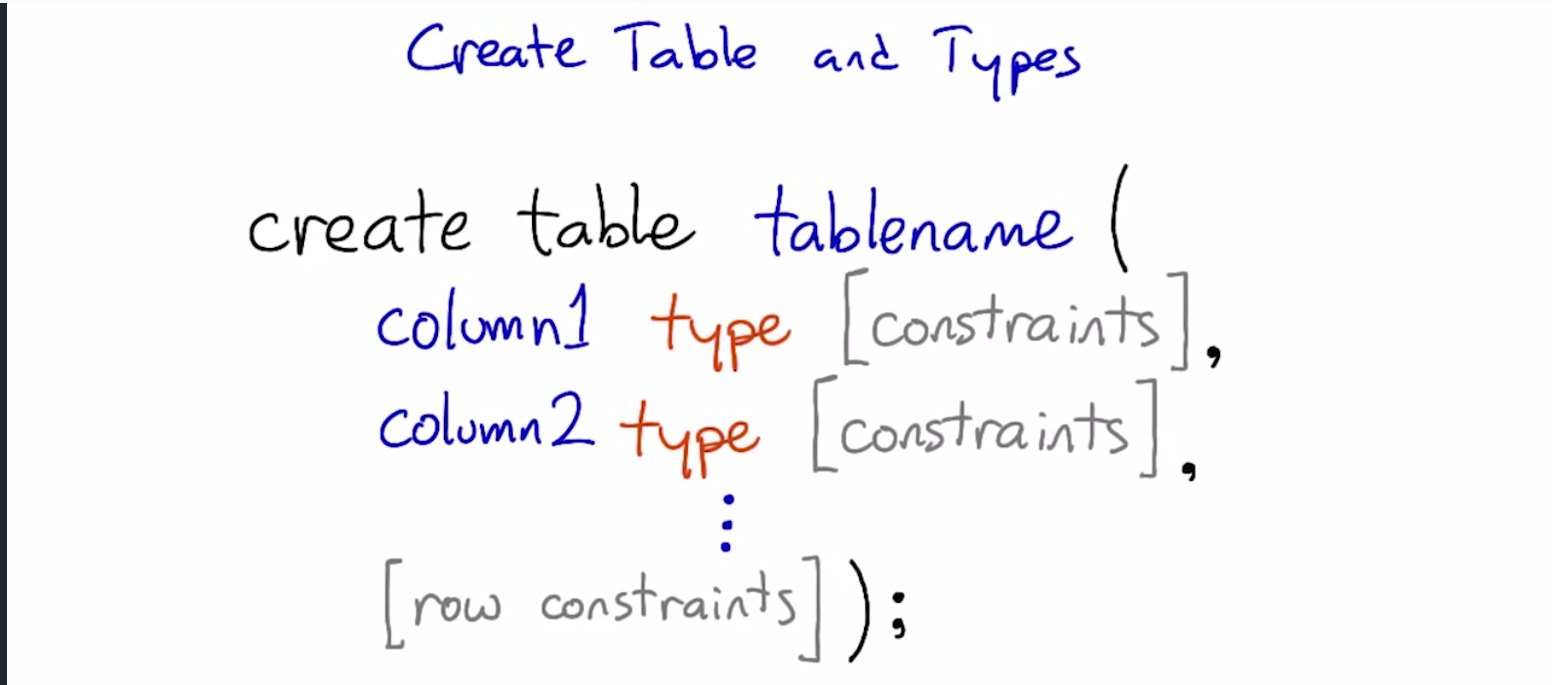 Create Table and Types
create table tablename (
column1 type [constraints],
column2 type [constraints],
⋮
[row constraints]);